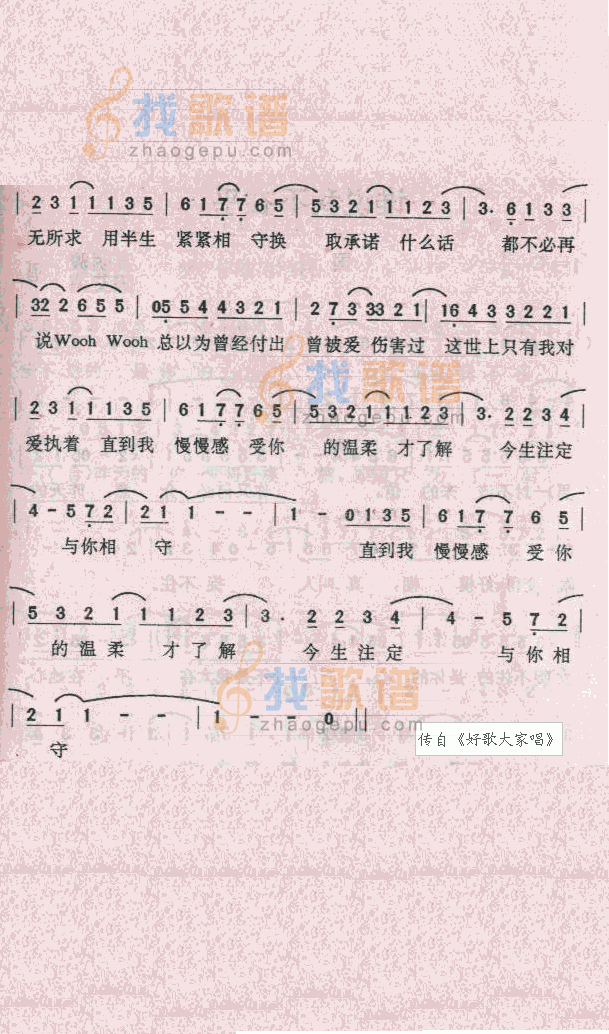 找歌谱
zhaogepu.com
| 2 3 1 1 1 3 5 | 6 1 7 7 6 5 | 5 3 2 1 1 1 2 3 | 3. 6 1 3 3
无所求 用半生 紧紧相 守换 取承诺 什么话 都不必再
| 32 2 6 5 5 | 05 5 4 4 3 2 1 | 2 7 3 33 2 1 | 16 4 3 3 2 2 1 |
说Wooh Wooh 总以为曾经付出 曾被爱 伤害过 这世上只有我对
找歌谱
zhaogepu.com
| 2 3 1 1 1 3 5 | 6 1 7 7 6 5 | 5 3 2 1 1 1 2 3 | 3. 2 2 3 4 |
爱执着 直到我 慢慢感 受你 的温柔 才了解 今生注定
| 4 - 5 7 2 | 2 1 1 - - | 1 - 0 1 3 5 | 6 1 7 7 6 5 |
与你相 守 直到我 慢慢感 受你
| 5 3 2 1 1 1 2 3 | 3. 2 2 3 4 | 4 - 5 7 2 |
的温柔 才了解 今生注定 与你相
找歌谱
zhaogepu.com
| 2 1 1 - - | 1 - - 0 ||
守
传自《好歌大家唱》